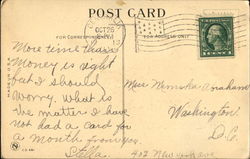 POST CARD
OCT 26
FOR CORRESPONDENCE
FOR ADDRESS ONLY
More time than
Money is right
but I should
worry. What is
the matter I have
not had a card for
a month from you
Miss
Washington.
D.C.
New York ave